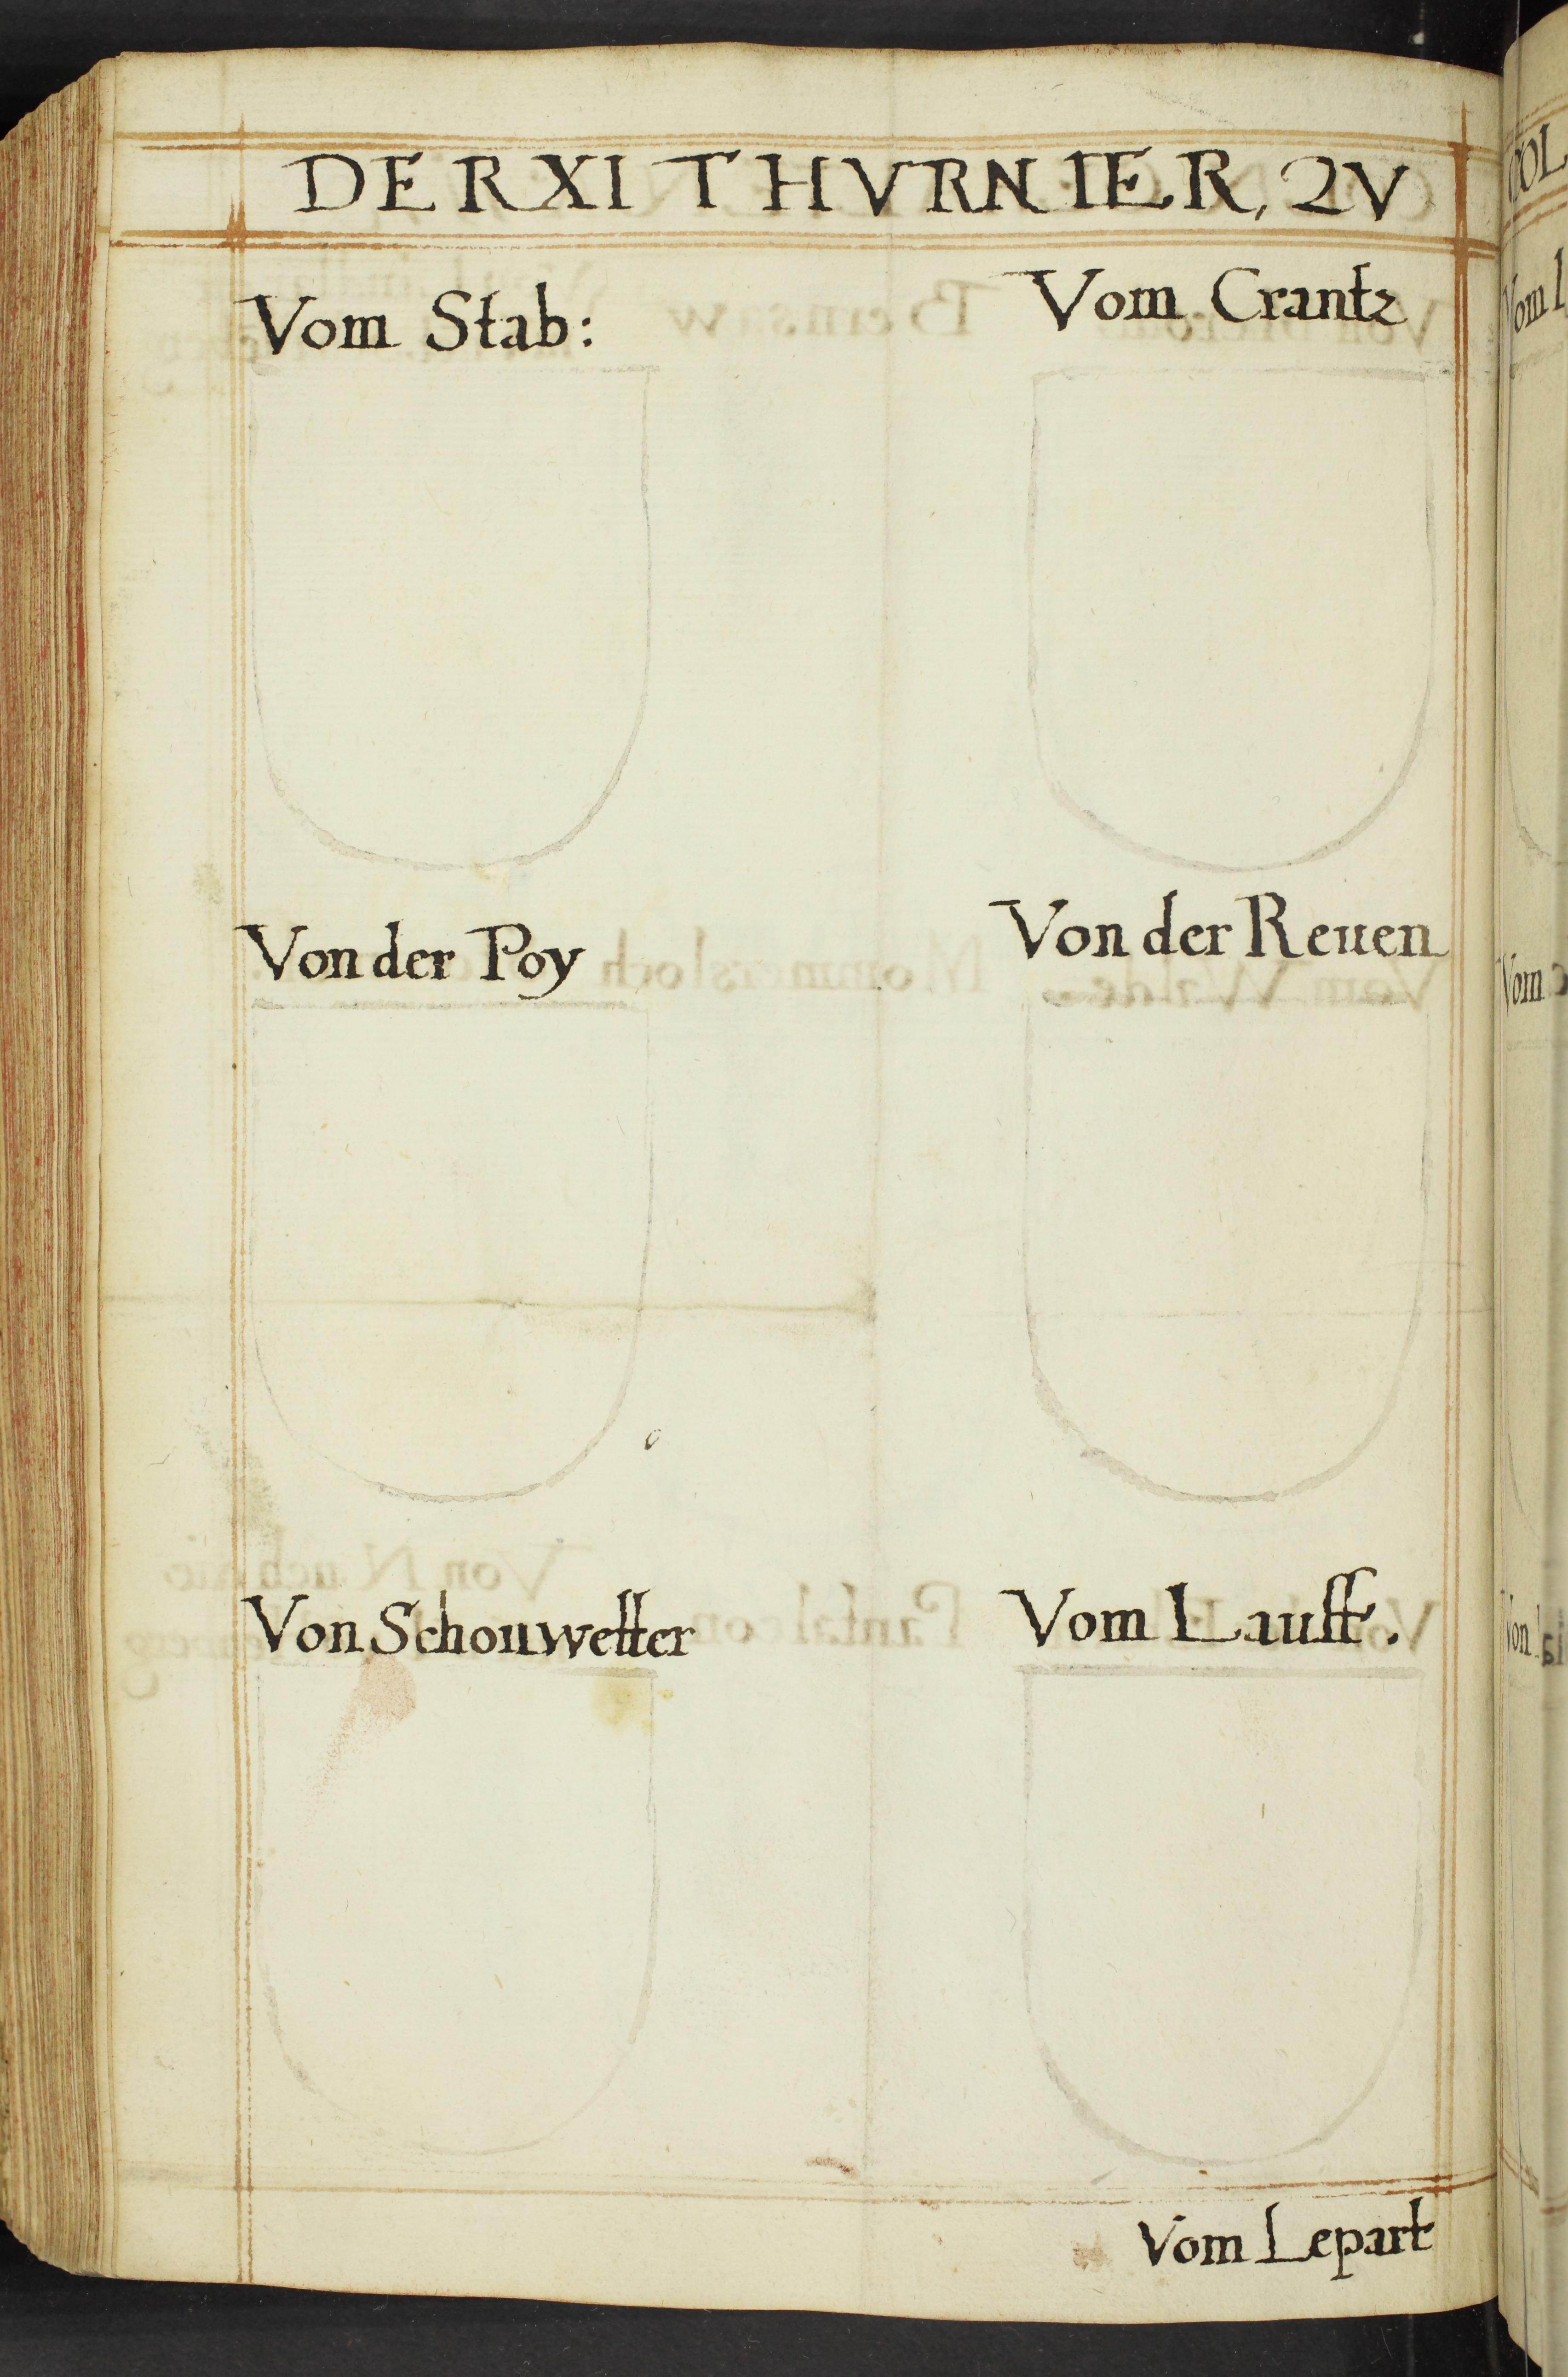 DER XI THVRNIER, ZV
Vom Stab:
Vom Crantz
Von der Poy
Von der Reuen
Von Schonwetter
Vom Lauff.
Vom Lepart